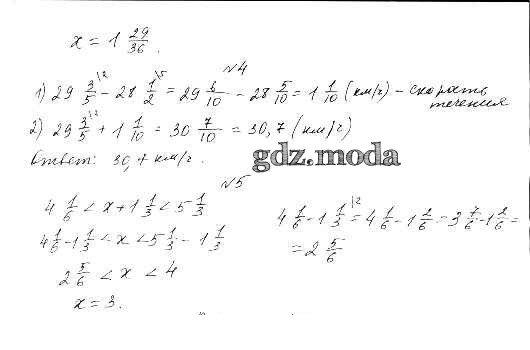 x = 1 29/36.
№4
1) 29 3/5 |2 - 28 1/2 |5 = 29 6/10 - 28 5/10 = 1 1/10 (км/г) - скорость
течения
2) 29 3/5 |2 + 1 1/10 = 30 7/10 = 30,7 (км/г)
Ответ: 30,7 км/г.
gdz.moda
№5
4 1/6 < x + 1 1/3 < 5 1/3
4 1/6 - 1 1/3 < x < 5 1/3 - 1 1/3
2 5/6 < x < 4
x = 3.
4 1/6 - 1 1/3 |2 = 4 1/6 - 1 2/6 = 3 7/6 - 1 2/6 =
= 2 5/6